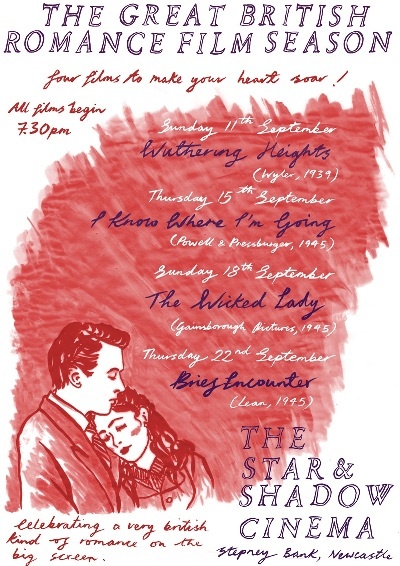 THE GREAT BRITISH
ROMANCE FILM SEASON
four films to make your heart soar!
All films begin
7.30pm
Sunday 11th September
Wuthering Heights
(Wyler, 1939)
Thursday 15th September
I Know Where I'm Going
(Powell & Pressburger, 1945)
Sunday 18th September
The Wicked Lady
(Gainsborough Pictures, 1945)
Thursday 22nd September
Brief Encounter
(Lean, 1945)
THE
STAR &
SHADOW
CINEMA
Stepney Bank, Newcastle
Celebrating a very british
kind of romance on the
big screen.